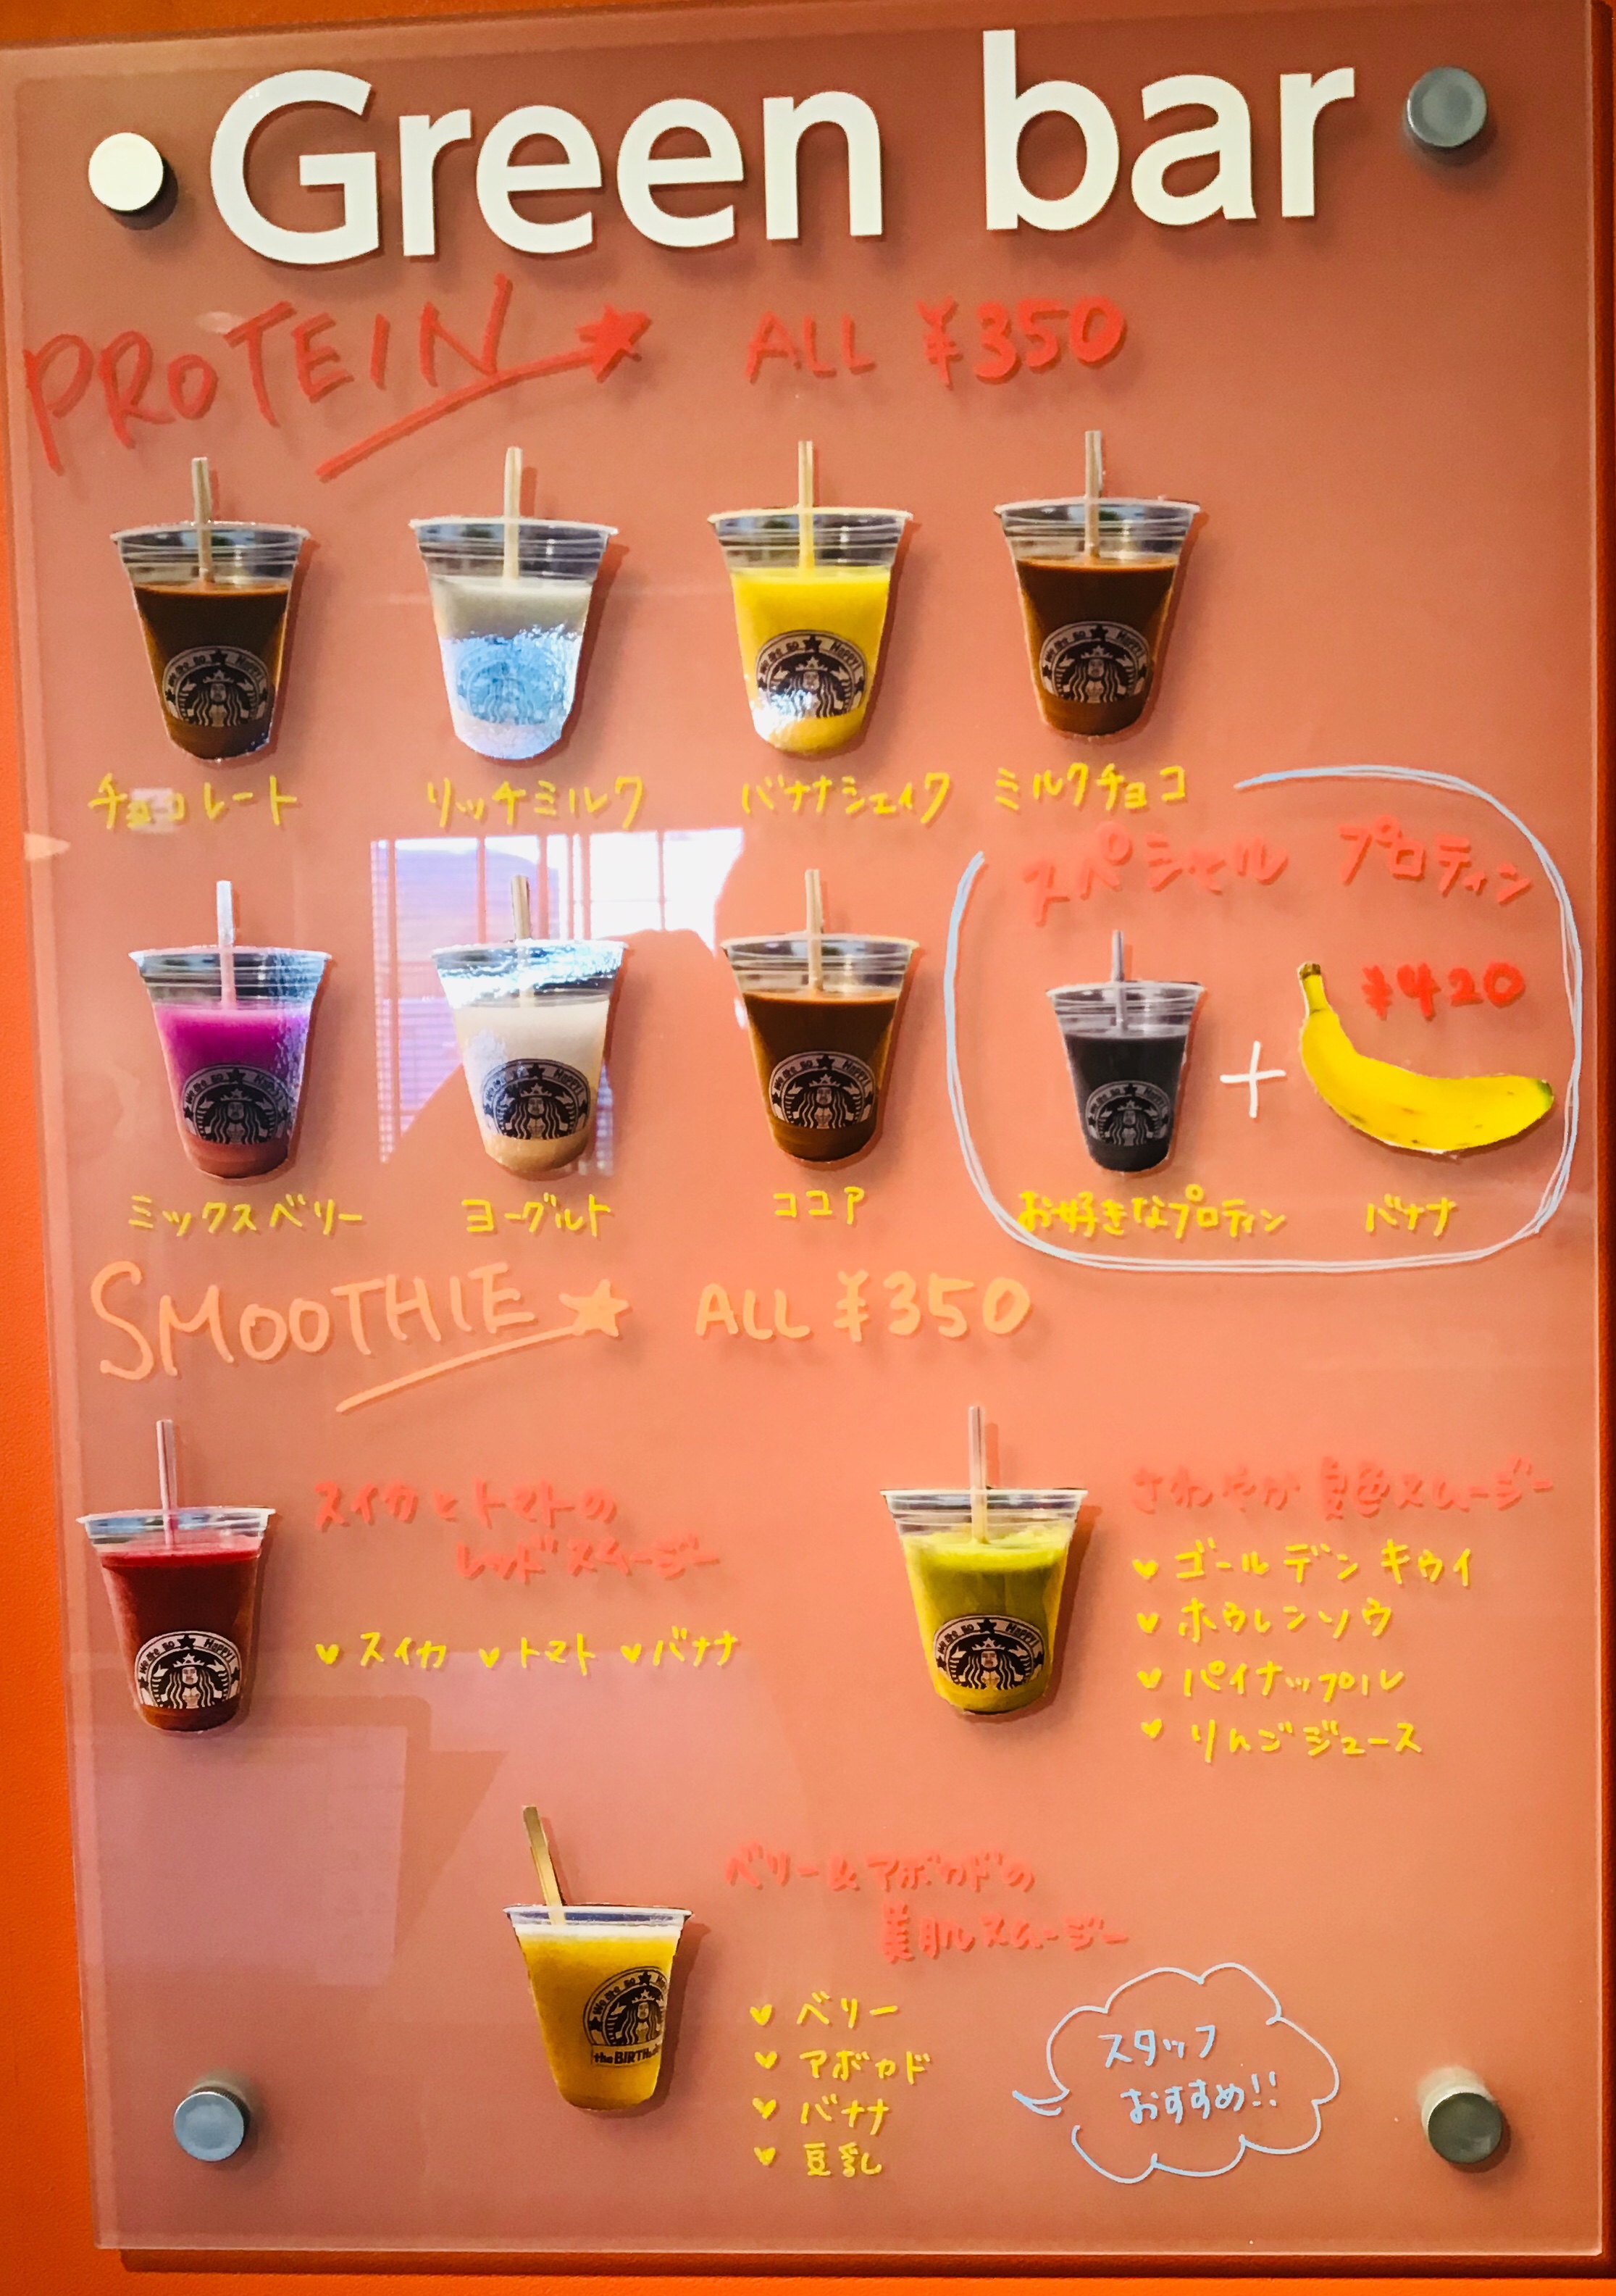 Green bar
PROTEIN★ ALL ¥350
チョコレート リッチミルク バナナシェイク ミルクチョコ
スペシャル プロテイン
¥420
+
ミックスベリー ヨーグルト ココア お好きなプロテイン バナナ
SMOOTHIE★ ALL ¥350
スイカとトマトの
レッドスムージー
♥スイカ ♥トマト ♥バナナ
さわやか スムージー
♥ゴールデンキウイ
♥ホウレンソウ
♥パイナップル
♥りんごジュース
ベリー&アボカドの
美肌スムージー
♥ベリー
♥アボカド
♥バナナ
♥豆乳
スタッフ
おすすめ!!
We Are So Happy!
the BIRTH